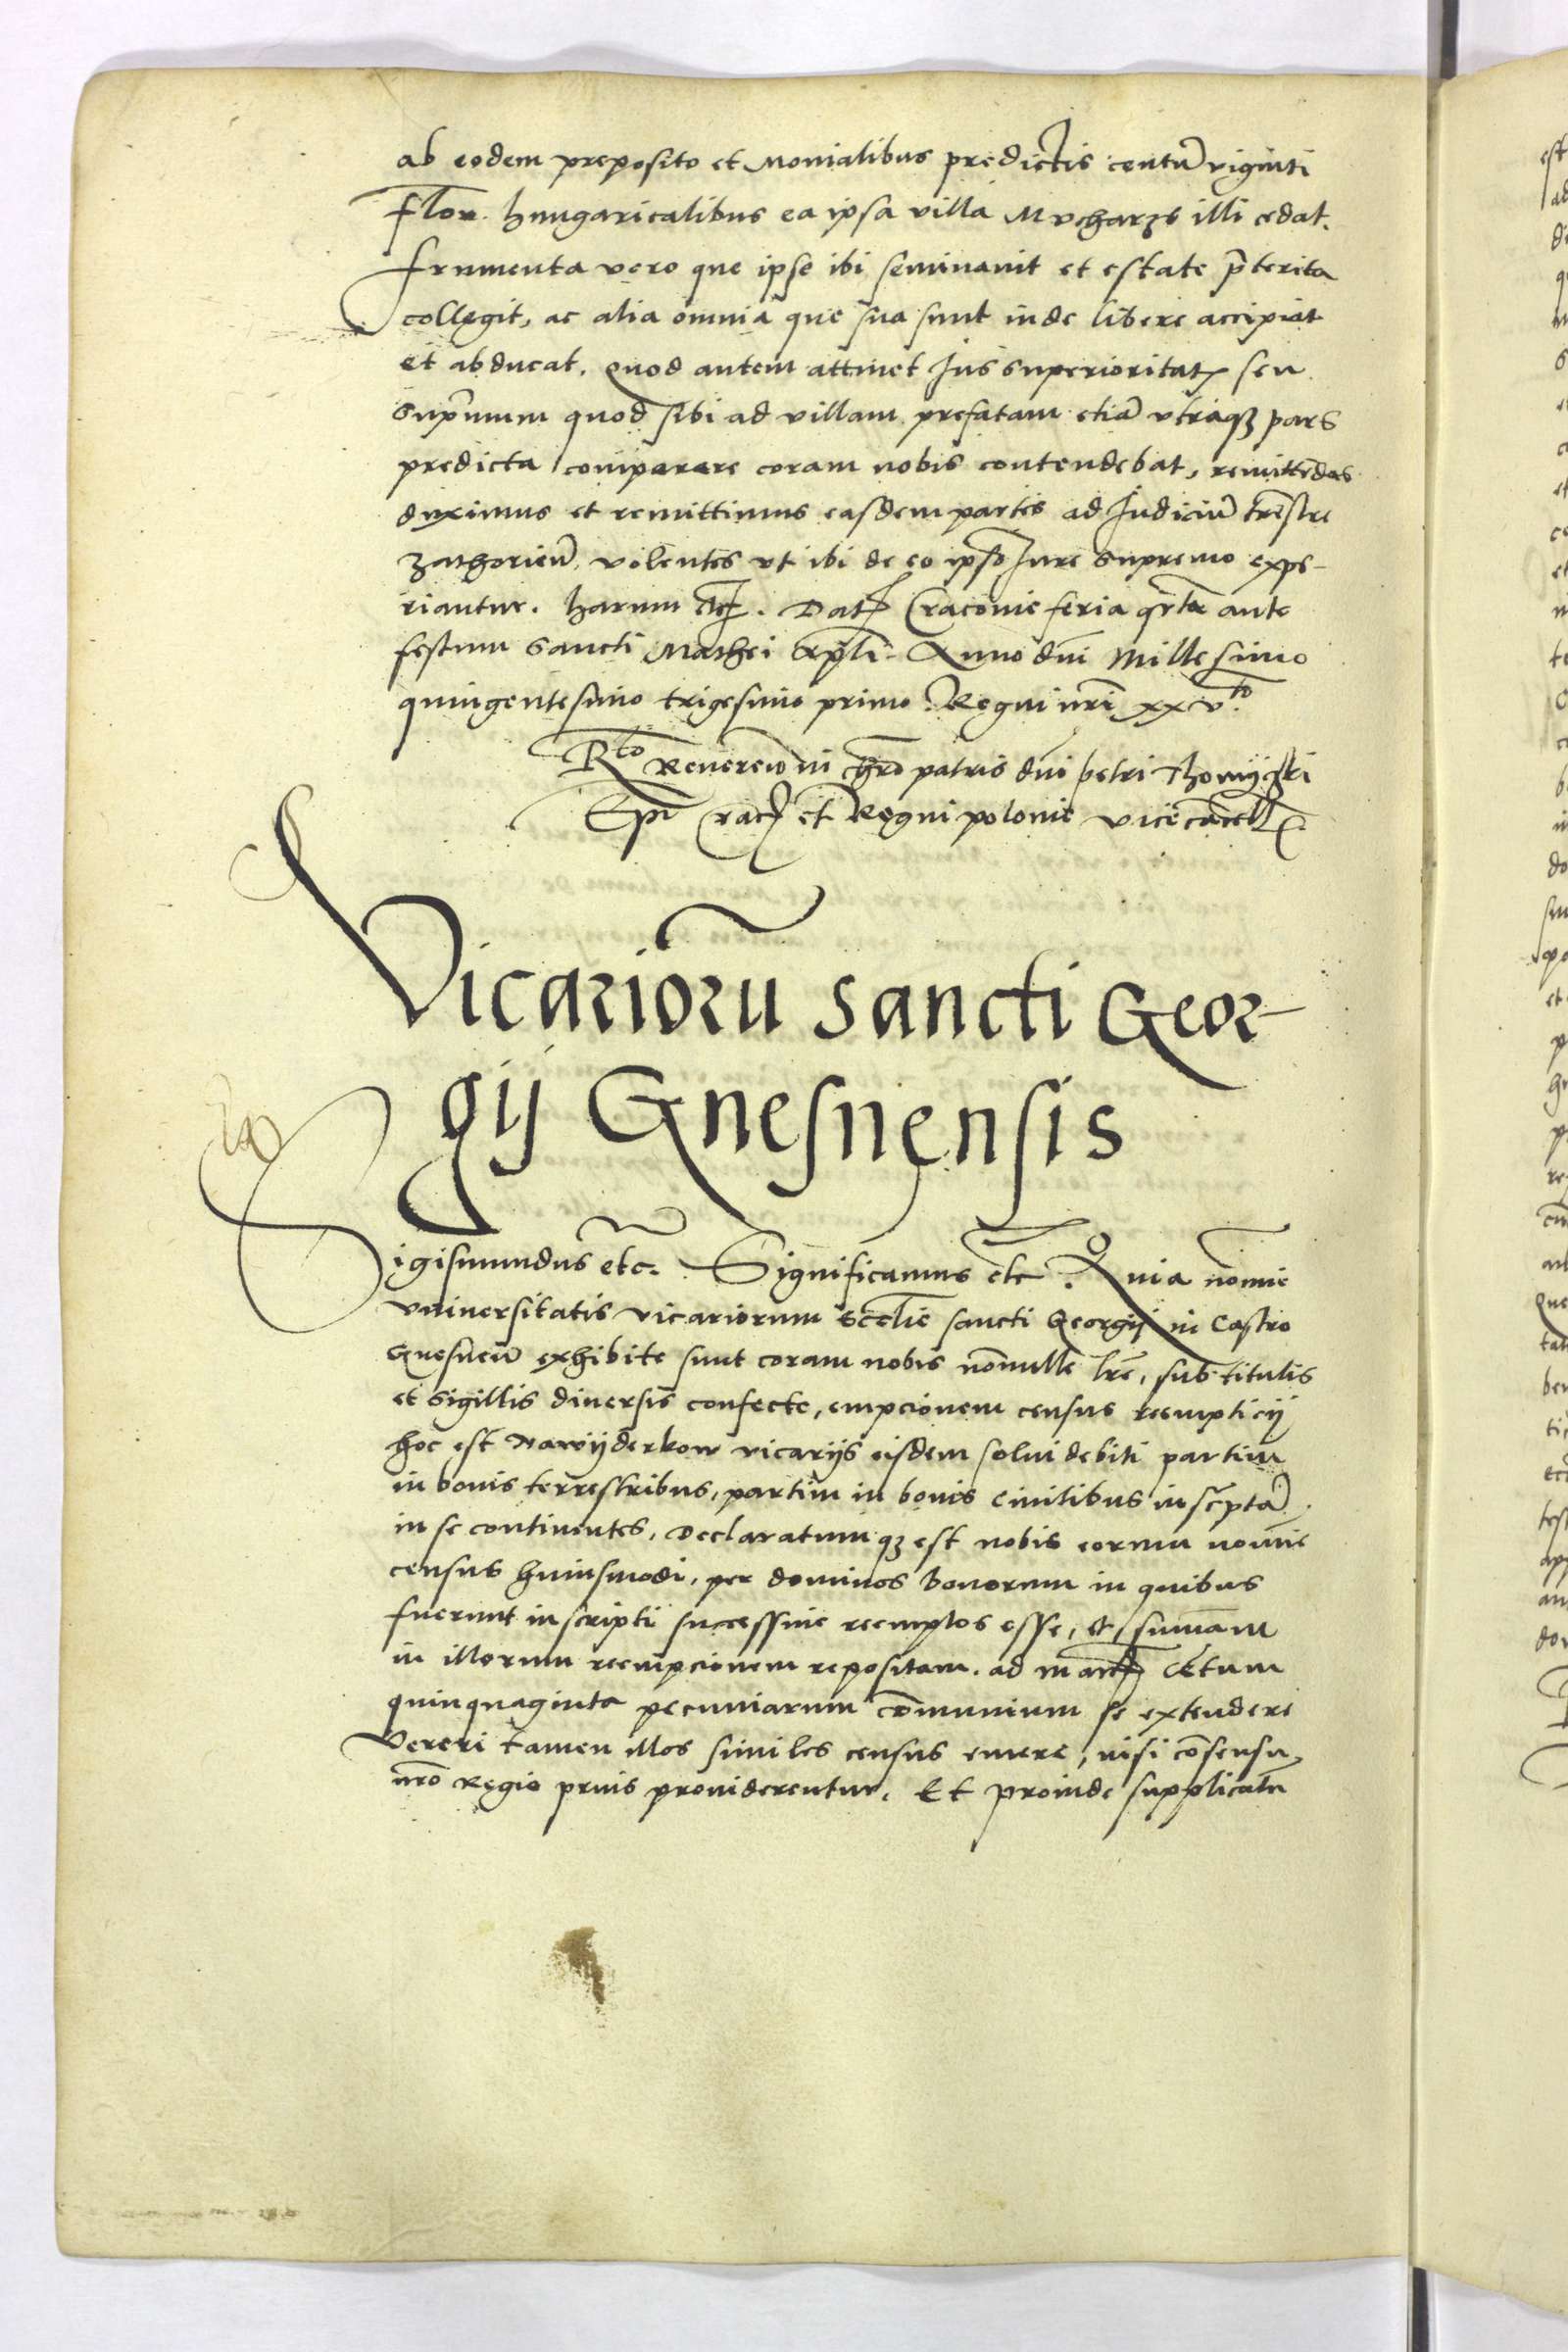 ab eodem preposito et Monialibus predictis centū viginti
Flor. hungaricalibus ea ipsa villa Mucharzs illi cedat.
Frumenta vero que ipse ibi seminavit et estate p̄terita
collegit, ac alia omnia que sua sunt inde libere accipiat
et abducat. Quod autem attinet Jus superioritatꝭ seu
sup̄mum quod sibi ad villam prefatam etiā vtraqꝫ pars
predicta comparare coram nobis contendebat, remittēdas
duximus et remittimus easdem partes ad Judiciū tr̄estre
Zathorien̄, volentes vt ibi de eo ipso Jure supremo expe-
riantur. harum etc. Datꝭ Cracovie feria qr̄ta ante
festum sancti Mathei Apl̄i. Anno dn̄i Millesimo
quingentesimo trigesimo primo. Regni nr̄i xxvto
Rlo Reveren in chro patris dn̄i petri Thomyczki
Ep̄i Cracꝭ et Regni polonie vicecācell
Vicariorū sancti Geor-
gij Gnesnensis
Sigismundus etc. Significamus etc. Quia nomine
vniversitatis vicariorum eccl̄ie sancti Georgij in Castro
Gnesnen̄ exhibite sunt coram nobis nōnulle lr̄e, sub titulis
et sigillis diversis confecte, empcionem census reempticij
hoc est Nawyderkow vicarijs eisdem solui debiti partim
in bonis terrestribus, partim in bonis civilibus inscr̄ptā
in se continentes. Declaratumqꝫ est nobis eorum nomine
census huiusmodi, per dominos bonorum in quibus
fuerunt inscripti successive reemptos esse, et summam
in illorum reempcionem repositam. ad marcꝭ Cētum
quinquaginta pecuniarum cōmunium se extendere
Vereri tamen illos similes census emere, nisi cōsensu
nr̄o Regio prius providerentur. Et proinde supplicatū